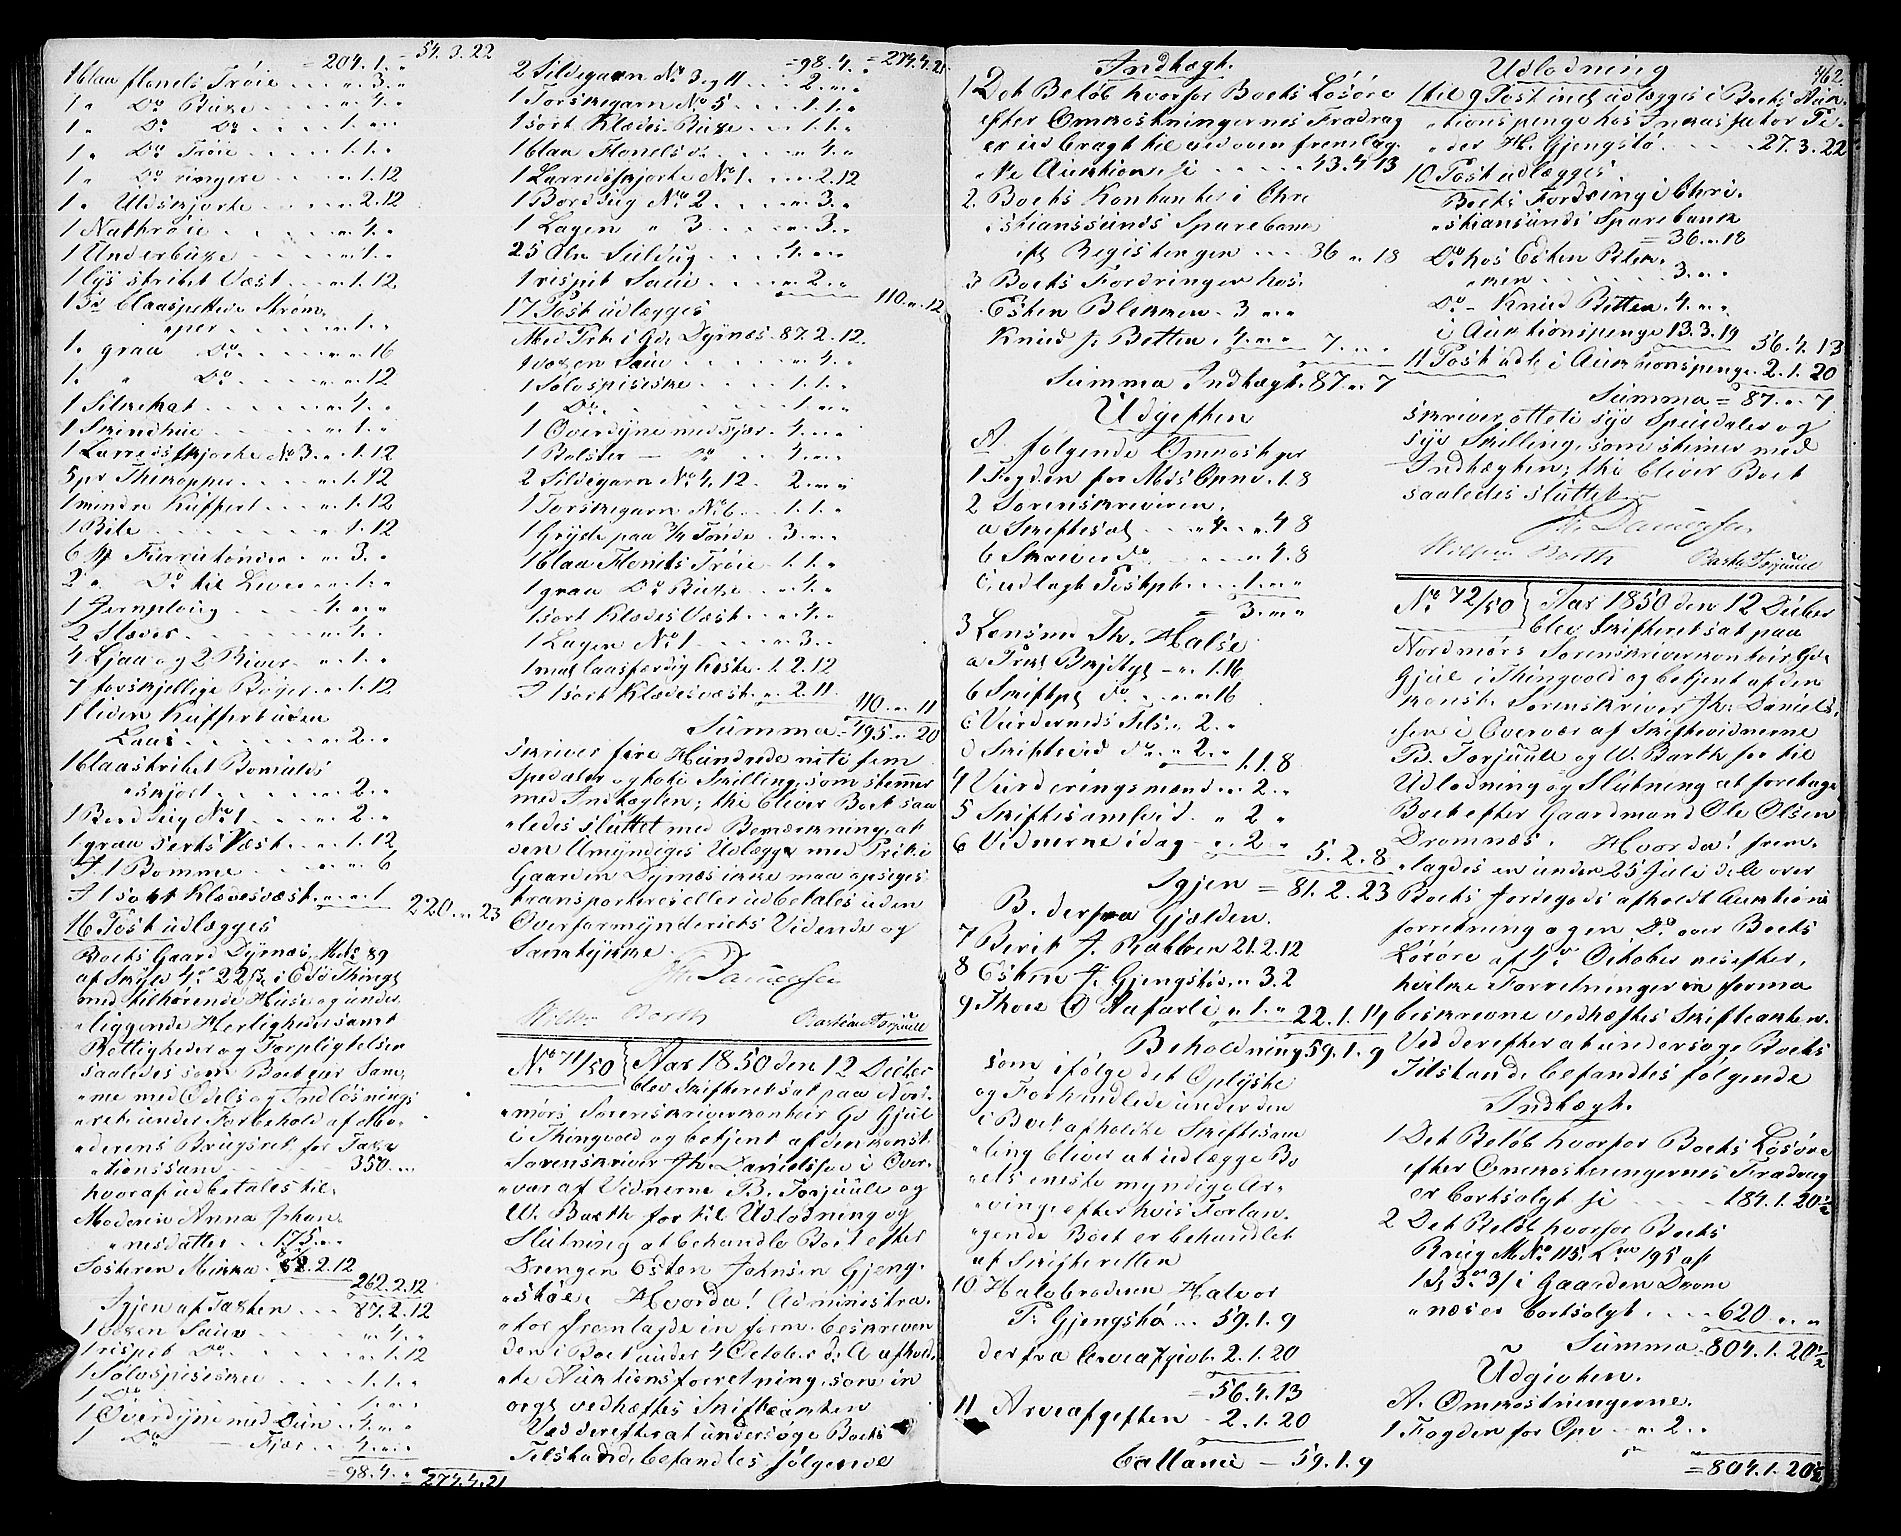 = 204.1.„ 54.3.22
1 blaa flonels Trøie . . . „ 3 „
1 „ Do Buxe . . . „ 4 „
1 „ Do Do . . . 1 „ „
1 „ Do Trøie . . . 1.1 „
1 „ Do ringere . . . „ 1.12
1 „ Uldskjorte . . . „ 2.12
1 Nattrøie . . . „ 4 „
1 Underbuxe . . . „ 1 „
1 lys stribet Væst . . „ 1.12
1 Par blaaspettede Strøm-
per . . . „ 1 „
1 „ graa Do . . . „ „ 16
1 „ „ Do . . . „ „ 12
1 Silkehat . . . „ 4 „
1 Skindhue . . . „ 1 „
1 Lærredsskjorte No 3 „ 1.12
5 pr Thekopper . . „ 1.12
1 mindre Kuffert . . „ 1.12
1 Bile . . . „ 1.12
6 Furrutønder . . „ 3 „
2 „ Do til Lever . . „ 1 „
1 Jernploug . . . 4 „ „
2 Slæder . . . „ 4 „
4 Ljaa og 2 River . . „ 1 „
7 forskjellige Bøger „ 1.12
1 liden Kuffert uden
Laas . . . „ 2 „
1 blaastribet Bomulds
skjort . . . „ 2 „
1 Borddug No 1 . . „ 2 „
1 graa Verks Væst . . „ 1.12
I 1 Bomme . . . „ „ 6
I 1 sort Klædesvæst „ „ 1 220 „ 23
16 Post udlægges
Boets Gaard Dyrnæs, M No 89
af Skyld 4 or 22 s/ i Edø Thingl
med tilhørende Huse og under-
liggende Herligheder samt
Rettigheder og Forpligtelser
saaledes som Boet eier Sam-
me med Odels og Indløsnings
ret under Forbehold af Mo-
derens Brugsret for Taxa-
tionssum . . . 350 . . .
hvoraf udbetales til
Moderen Anna Johan-
nesdatter . . 175 „ „
Søsteren Mikka . 87.2.12 262.2.12
Igjen af Taxten . . . 87.2.12
1 voxen Sau . . . „ 4 „
1 rispit Do . . . „ 1.12
1 Sølvspiseske . . . 1.1 „
1 Do . . . 1 „ „
1 Overdyne med Duun . . 4 „ „
1 Do — Fjær . . 4 „ „
= 98.4.„ = 274.4.21
= 98.4.„ = 274.4.21
2 Sildegarn No 3 og 11 . . 2 „ „
1 Torskegarn No 5 . . . 1.1 „
1 sort Klædes Buxe . . . 1.1 „
1 blaa Flonels do . . . „ 4 „
1 Lærredsskjorte No 1 . . . „ 2.12
1 Borddug No 2 . . . „ 3 „
1 Lagen „ 3 . . . „ 3 „
25 Aln Seildug . . . „ 4 „
1 rispit Sau . . . „ 2 „ 110 „ 12
17 Post udlægges
Med Prt. i Gd. Dyrnæs 87.2.12.
1 voxen Sau . . . „ 4 „
1 Sølvspiseske . . . 1.1 „
1 Do . . . 1 „ „
1 Overdyne med Fjær . . 4 „ „
1 Bolster — Do . . 4 „ „
2 Sildegarn No 4, 12 . 2 „ „
1 Torskegarn No 6 . . . 1.1 „
1 Gryde paa 3/4 Tønde . . 3 „ „
1 blaa Flonels Trøie . . 1.1 „
1 graa Do Buxe . . „ 1 „
1 sort Klædes Væst . . „ 4 „
1 Lagen No 1 . . . „ 3 „
1 mes laasfærdig Kiste . 1.2.12
I 1 sort Klædesvæst . „ 2.11 110 „ 11
Summa = 495 „ 20
skriver fire Hundrede niti fem
Spedaler og toti Skilling, som stemmer
med Indtægten; thi bliver Boet saa
ledes sluttet med Bemærkning, at
den Umyndiges Udlægg med Prt. i
Gaarden Dyrnæs ikke maa opsiges
transporteres eller udbetales uden
Overformynderiets Vidende og
Samtykke.
Jh. Danielsen
Wilhm Barth Bastian Torjuul
No 71/50 } Aar 1850 den 12 Decbr
blev Skifteret sat paa Nord-
mørs Sorenskriverkontoir Gd Gjul
i Thingvold og betjent af den konst.
Sorenskriver Jh. Danielsen i Over-
vær af Vidnerne B. Torjuul og
W. Barth for til Udlodning og
Slutning at behandle Boet efter
Drengen Esten Johnsen Gjeng-
støe. Hvorda! Administra-
tor fremlagde in form. beskreven
den i Boet under 4 October d: A afhold-
te Auktionsforretning som in
orgl vedhæftes Skifteakten
Ved derefter at undersøge Boets
Tilstand befandtes følgende
Indtægt.
1 Det Beløb hvorfor Boets Løsøre
efter Omkostningernes Fradrag
er udbragt til ved oven fremlag-
te Auktion, er . . . 43.4.13
2 Boets Kontanter i Chri
stianssunds Sparebank
efter Registeringen . . . 36 „ 18
3 Boets Fordringer hos:
Esten Blekken . 3 „ „
Knud J. Botten . 4 „ „ 7 „ „
Summa Indtægt. 87 „ 7
Udgiften
A. følgende Omkostger
1 Fogden for Møds Opnv . 1.8
2 Sorenskriveren.
a Skiftesal . . . „ 4 . . 4 8
b Skriver do . . . „ 4.8
c udlagt Postpt . . . 1 „ „
= 3 „ „
3 Lensm. Th. Halse
a Prkl Bkjtgl — „ 1.16
b Skiftpl do . . „ „ 16
c Vurderneds Tils . „ 2 „
d Skiftevid do . . „ 2 „ 1.1.8
4 Vurderingsmænd . . „ 2 „
5 Skiftesamlvid . . „ 2 „
6 Vidnerne idag . . „ 2 „ 5.2.8
Igjen = 81.2.23
B. derfra Gjælden.
7 Berit J. Rabben 21.2.12
8 Esten J. Gjengstøs „ 3.2
9 Thore O Aafarli . „ 1 „ 22.1.14
Beholdning 59.1.9
som ifølge det Oplyste
og Forhandlede under den
i Boet afholdte Skiftesam
ling bliver at udlægge Bo
ets eneste myndige Ar-
ving efter hvis Forlan-
gende Boet er behandlet
af Skifteretten
10 Halvbroderen Halvor
P. Gjengstø . . . 59.1.9
derfra Arveafgivt. 2.1.20
= 56.4.13
11 Arveafgiften — 2.1.20
Ballance — 59.1.9
Udlodning 462
1 til 9 Post incl. udlægges i Boets Auk-
tionspenge hos Inkassator Pe-
der H. Gjengstø . . . 27.3.22
10 Post udlægges.
Boets Fordring i Chri-
stiansunds Sparebank
= 36 „ 18
Do hos Esten Blek-
ken . . . 3 „ „
Do — Knud Botten . 4 „ „
i Auktionspenge 13.3.19 56.4.13
11 Post udl. i Auktionspenge 2.1.20
Summa = 87 „ 7
skriver otteti syv Speciedaler og
syv Skilling, som stemer med
Indtægten; thi bliver Boet
saaledes sluttet.
Jh. Danielsen
Wilhm Barth Bastn Torjuul
No 72/50 } Aar 1850 den 12 Decbr
blev Skifteret sat paa
Nordmørs Sorenskriverkontoir Gd
Gjul i Thingvold og betjent af den
konst. Sorenskriver Jh. Daniel-
sen i Overvær af Skiftevidnerne
B. Torjuul og W. Barth for til
Udlodning og Slutning at foretage
Boet efter Gaardmand Ole Olsen
Dromnæs. Hvorda! frem-
lagdes en under 25 Juli d: A over
Boets Jordegods afholdt Auktions
forretning og en Do over Boets
Løsøre af 4 de Oktober næstefter,
hvilke Forretninger in forma
beskrevne vedhæftes Skifteakten.
Ved derefter at undersøge Boets
Tilstande befandtes følgende
Indtægt.
1 Det Beløb hvorfor Boets Løsøre
efter Omkostningernes Fradrag
er bortsolgt er . . . 184.1.20½
2 Det Beløb hvorfor Boets
Brug M. No 115, L. No 195 af
1 d 3 or 3 s/ i Gaarden Drom
næs er bortsolgt . . . 620 „ „
Summa 804.1.20½
Udgivten.
A. Omkostningerne.
1 Fogden for Opv — „ 2 „
= 804.1.20½